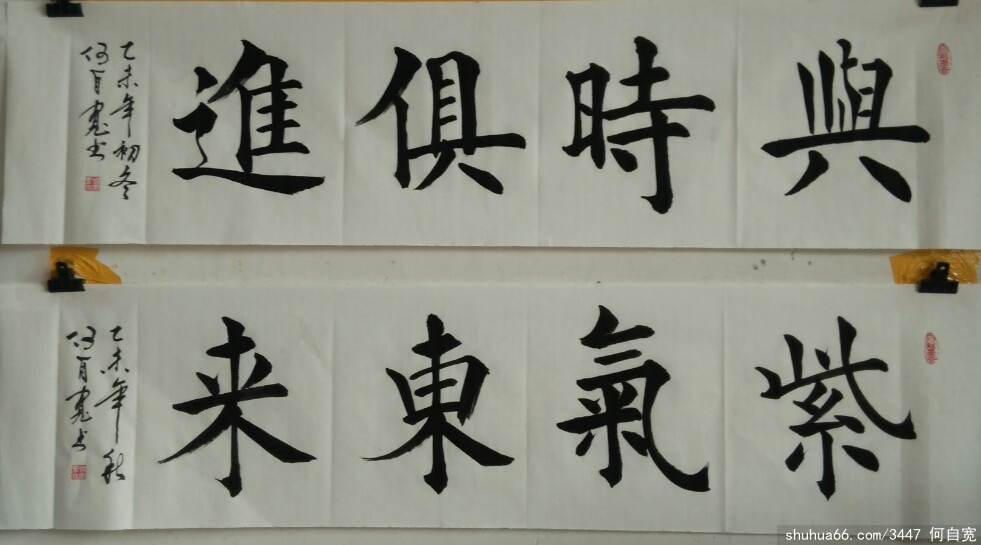 與時俱進
乙未年初冬
何自宽书
紫氣東来
乙未年秋
何自宽书
shuhua66.com/3447 何自宽